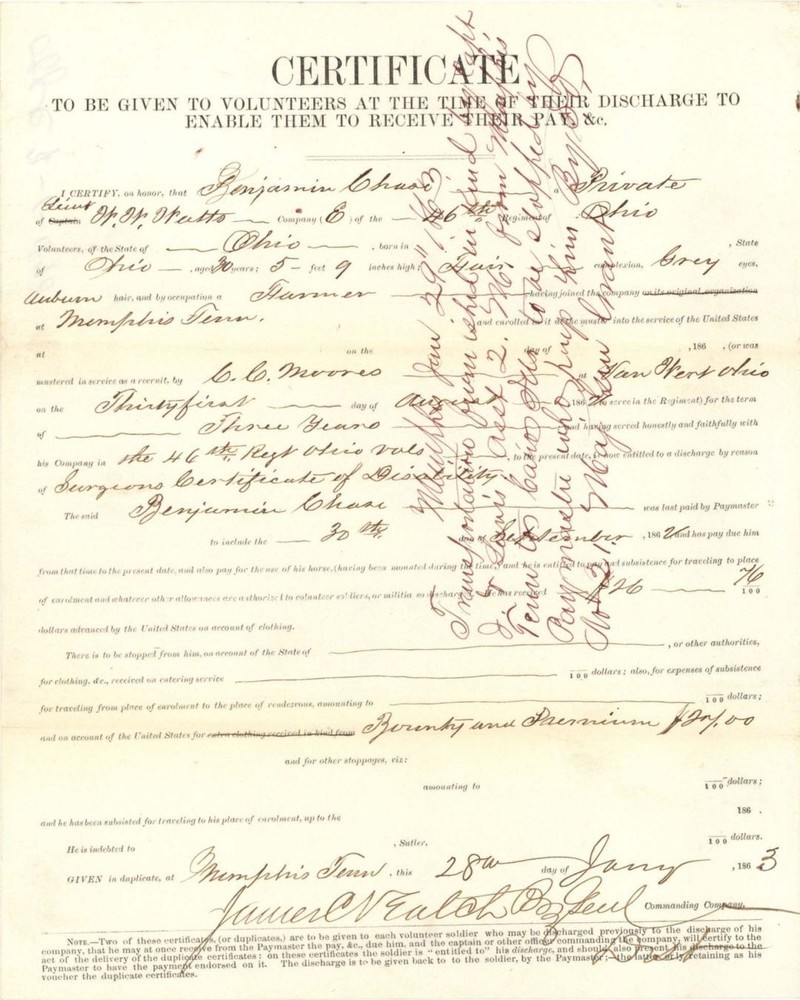 CERTIFICATE
TO BE GIVEN TO VOLUNTEERS AT THE TIME OF THEIR DISCHARGE TO
ENABLE THEM TO RECEIVE THEIR PAY, &c.
I CERTIFY, on honor, that Benjamin Chase a Private
Lieut
of Captain W. W. Watts Company (E) of the 46th Regiment of Ohio
Volunteers, of the State of Ohio, born in , State
of Ohio, aged 30 years; 5 feet 9 inches high; Fair complexion, Grey eyes,
Auburn hair, and by occupation a Farmer having joined the company on its original organization
at Memphis Tenn. and enrolled in it at the muster into the service of the United States
at on the day of , 186 , (or was
mustered in service as a recruit, by C. C. Moores at Van Wert Ohio
on the Thirtyfirst day of August 186 to serve in the Regiment) for the term
of Three Years and having served honestly and faithfully with
his Company in the 46th Regt Ohio vols, to the present date, is now entitled to a discharge by reason
of Surgeons Certificate of Disability
The said Benjamin Chase was last paid by Paymaster
to include the 30th day of September, 1862 and has pay due him
from that time to the present date, and also pay for the use of his horse, (having been mounted during the time,) and he is entitled to pay and subsistence for traveling to place
of enrolment and whatever other allowances are authorized to volunteer soldiers, or militia so discharged. He has received $26 76/100
dollars advanced by the United States on account of clothing.
There is to be stopped from him, on account of the State of , or other authorities,
for clothing, &c., received on entering service 100 dollars; also, for expenses of subsistence
for traveling from place of enrolment to the place of rendezvous, amounting to 100 dollars;
and on account of the United States for extra clothing received in kind from Bounty and Premium $27.00
and for other stoppages, viz:
amounting to 100 dollars;
and he has been subsisted for traveling to his place of enrolment, up to the 186 .
He is indebted to , Sutler. 100 dollars.
GIVEN in duplicate, at Memphis Tenn, this 28th day of Jany, 1863
James C Commanding Company.
NOTE.—Two of these certificates, (or duplicates,) are to be given to each volunteer soldier who may be discharged previously to the discharge of his
company, that he may at once receive from the Paymaster the pay, &c., due him, and the captain or other officer commanding the company, will certify to the
act of the delivery of the duplicate certificates: on these certificates the soldier is "entitled to" his discharge, and should also present his discharge to the
Paymaster to have the payment endorsed on it. The discharge is to be given back to to the soldier, by the Paymaster;—the latter only retaining as his
voucher the duplicate certificates.
Memphis Jan 29" 1863
Transportation furnished in kind by
St Louis Asst 2. M. from Memphis
Tenn to Cairo Ills to be stopped by
Paymaster who pays him By
No 21.